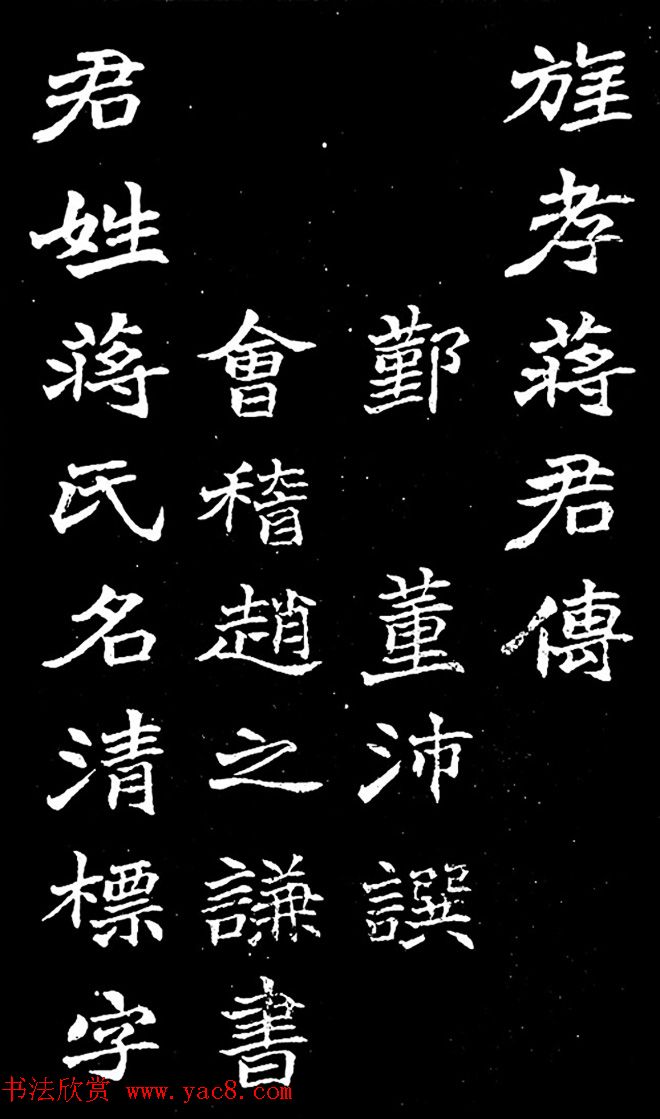 旌孝蔣君傳
鄞 董沛譔
會稽趙之謙書
君姓蔣氏名清標字
书法欣赏 www.yac8.com